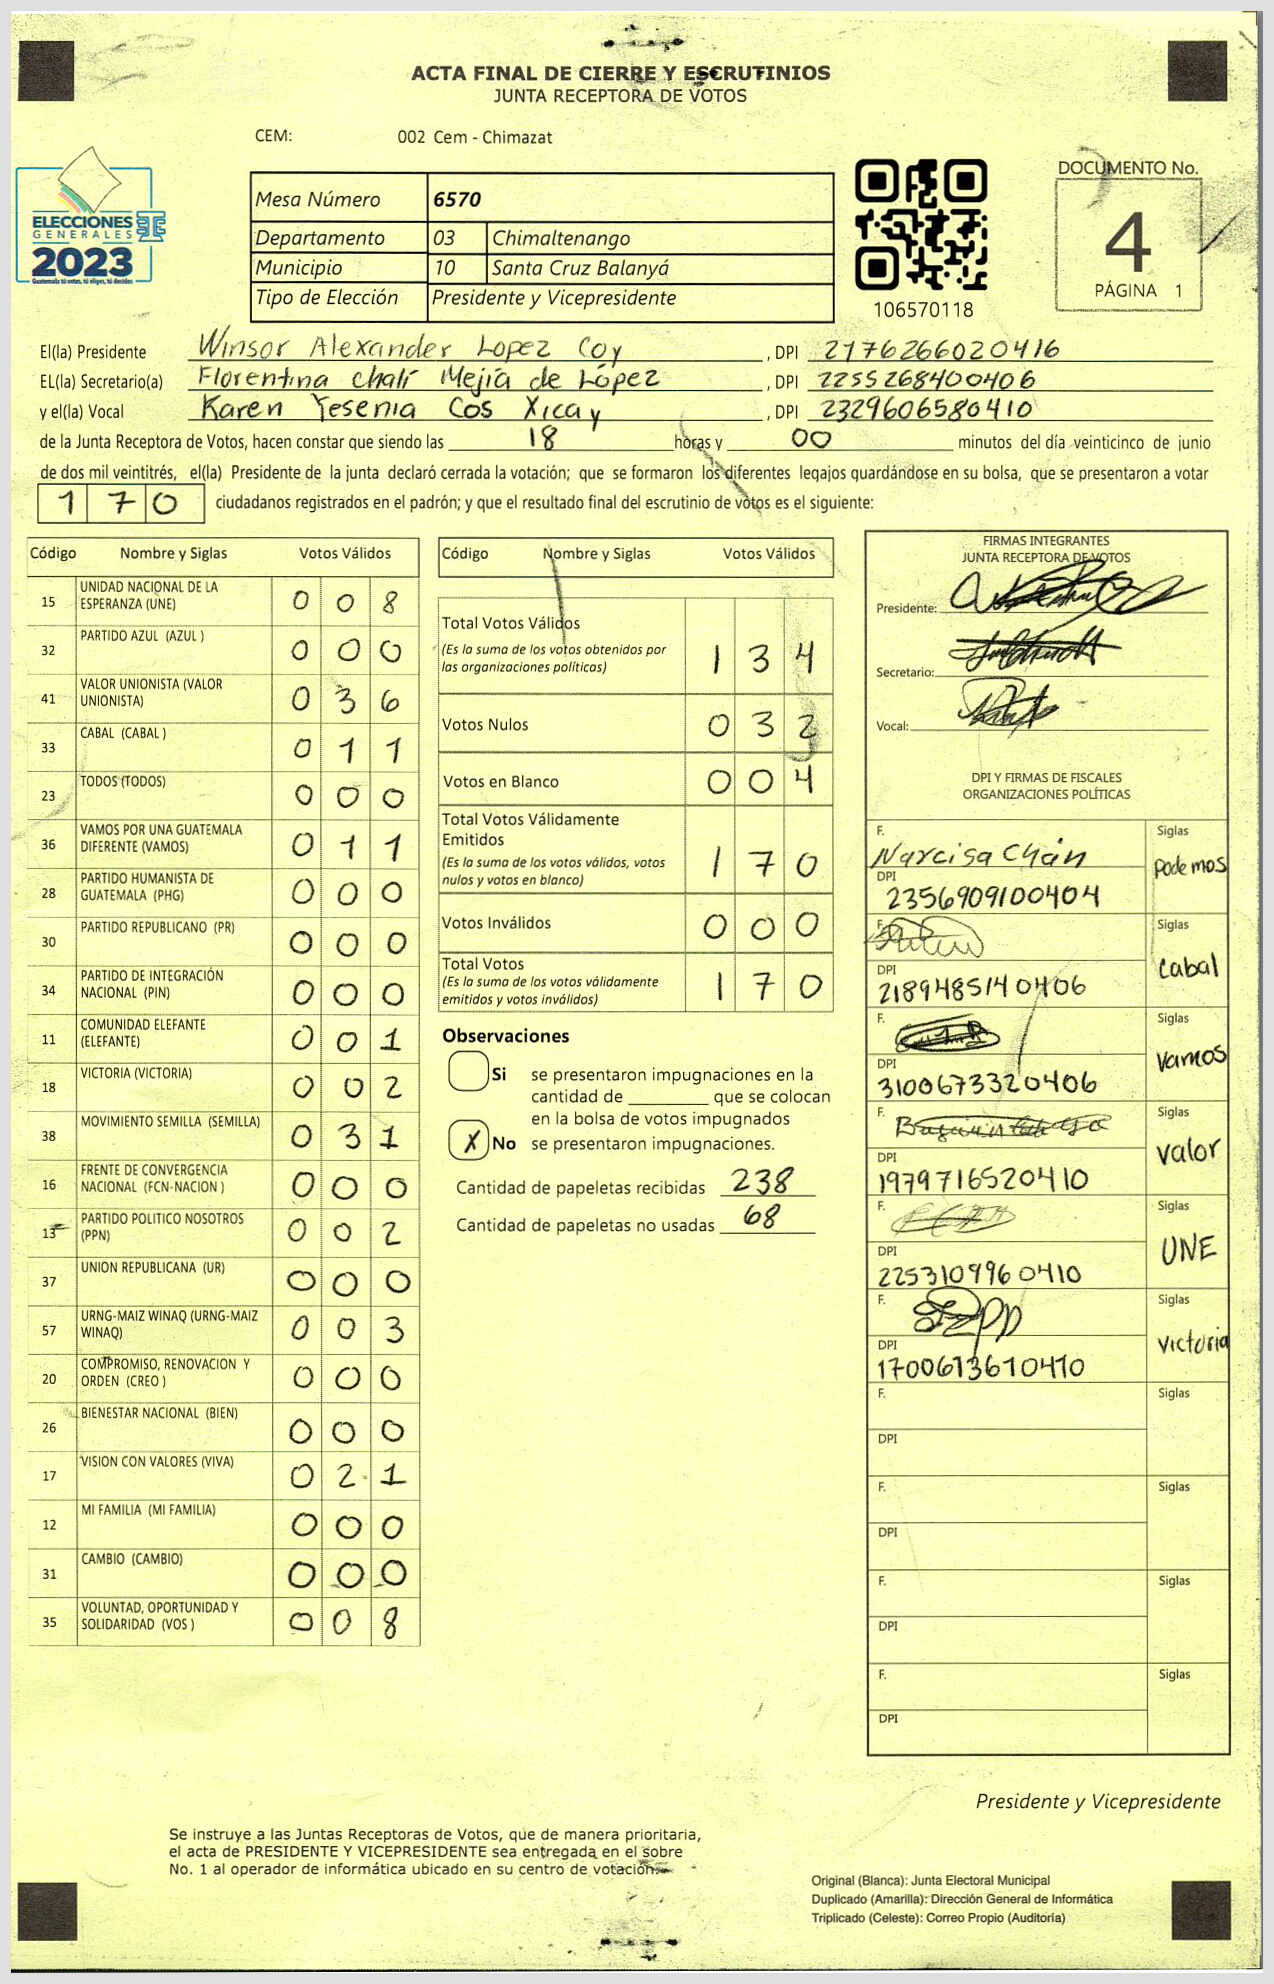 ACTA FINAL DE CIERRE Y ESCRUTINIOS
JUNTA RECEPTORA DE VOTOS
CEM: 002 Cem - Chimazat
ELECCIONES
GENERALES
2023
Guatemala tú votas, tú eliges, tú decides
Mesa Número 6570
Departamento 03 Chimaltenango
Municipio 10 Santa Cruz Balanyá
Tipo de Elección Presidente y Vicepresidente
106570118
DOCUMENTO No.
4
PÁGINA 1
El(la) Presidente Winsor Alexander Lopez Coy, DPI 2176266020416
EL(la) Secretario(a) Florentina Chalí Mejía de López, DPI 2255268400406
y el(la) Vocal Karen Yesenia Cos Xicay, DPI 2329606580410
de la Junta Receptora de Votos, hacen constar que siendo las 18 horas y 00 minutos del día veinticinco de junio
de dos mil veintitrés, el(la) Presidente de la junta declaró cerrada la votación; que se formaron los diferentes legajos quardándose en su bolsa, que se presentaron a votar
170 ciudadanos registrados en el padrón; y que el resultado final del escrutinio de votos es el siguiente:
Código Nombre y Siglas Votos Válidos
15 UNIDAD NACIONAL DE LA ESPERANZA (UNE) 0 0 8
32 PARTIDO AZUL (AZUL ) 0 0 0
41 VALOR UNIONISTA (VALOR UNIONISTA) 0 3 6
33 CABAL (CABAL ) 0 1 1
23 TODOS (TODOS) 0 0 0
36 VAMOS POR UNA GUATEMALA DIFERENTE (VAMOS) 0 1 1
28 PARTIDO HUMANISTA DE GUATEMALA (PHG) 0 0 0
30 PARTIDO REPUBLICANO (PR) 0 0 0
34 PARTIDO DE INTEGRACIÓN NACIONAL (PIN) 0 0 0
11 COMUNIDAD ELEFANTE (ELEFANTE) 0 0 1
18 VICTORIA (VICTORIA) 0 0 2
38 MOVIMIENTO SEMILLA (SEMILLA) 0 3 1
16 FRENTE DE CONVERGENCIA NACIONAL (FCN-NACION ) 0 0 0
13 PARTIDO POLITICO NOSOTROS (PPN) 0 0 2
37 UNION REPUBLICANA (UR) 0 0 0
57 URNG-MAIZ WINAQ (URNG-MAIZ WINAQ) 0 0 3
20 COMPROMISO, RENOVACION Y ORDEN (CREO ) 0 0 0
26 BIENESTAR NACIONAL (BIEN) 0 0 0
17 VISION CON VALORES (VIVA) 0 2 1
12 MI FAMILIA (MI FAMILIA) 0 0 0
31 CAMBIO (CAMBIO) 0 0 0
35 VOLUNTAD, OPORTUNIDAD Y SOLIDARIDAD (VOS ) 0 0 8
Código Nombre y Siglas Votos Válidos
Total Votos Válidos
(Es la suma de los votos obtenidos por
las organizaciones políticas) 1 3 4
Votos Nulos 0 3 2
Votos en Blanco 0 0 4
Total Votos Válidamente
Emitidos
(Es la suma de los votos válidos, votos
nulos y votos en blanco) 1 7 0
Votos Inválidos 0 0 0
Total Votos
(Es la suma de los votos válidamente
emitidos y votos inválidos) 1 7 0
Observaciones
Si se presentaron impugnaciones en la
cantidad de ________ que se colocan
en la bolsa de votos impugnados
X No se presentaron impugnaciones.
Cantidad de papeletas recibidas 238
Cantidad de papeletas no usadas 68
FIRMAS INTEGRANTES
JUNTA RECEPTORA DE VOTOS
Presidente:
Secretario:
Vocal:
DPI Y FIRMAS DE FISCALES
ORGANIZACIONES POLÍTICAS
F. Narcisa Chán Siglas podemos
DPI 2356909100404
F. Siglas Cabal
DPI 2189485140406
F. Siglas Vamos
DPI 3100673320406
F. Siglas Valor
DPI 1979716520410
F. Siglas UNE
DPI 2253109960410
F. Siglas Victoria
DPI 1700613610410
F. Siglas
DPI
F. Siglas
DPI
F. Siglas
DPI
F. Siglas
DPI
Presidente y Vicepresidente
Se instruye a las Juntas Receptoras de Votos, que de manera prioritaria,
el acta de PRESIDENTE Y VICEPRESIDENTE sea entregada en el sobre
No. 1 al operador de informática ubicado en su centro de votación.
Original (Blanca): Junta Electoral Municipal
Duplicado (Amarilla): Dirección General de Informática
Triplicado (Celeste): Correo Propio (Auditoría)